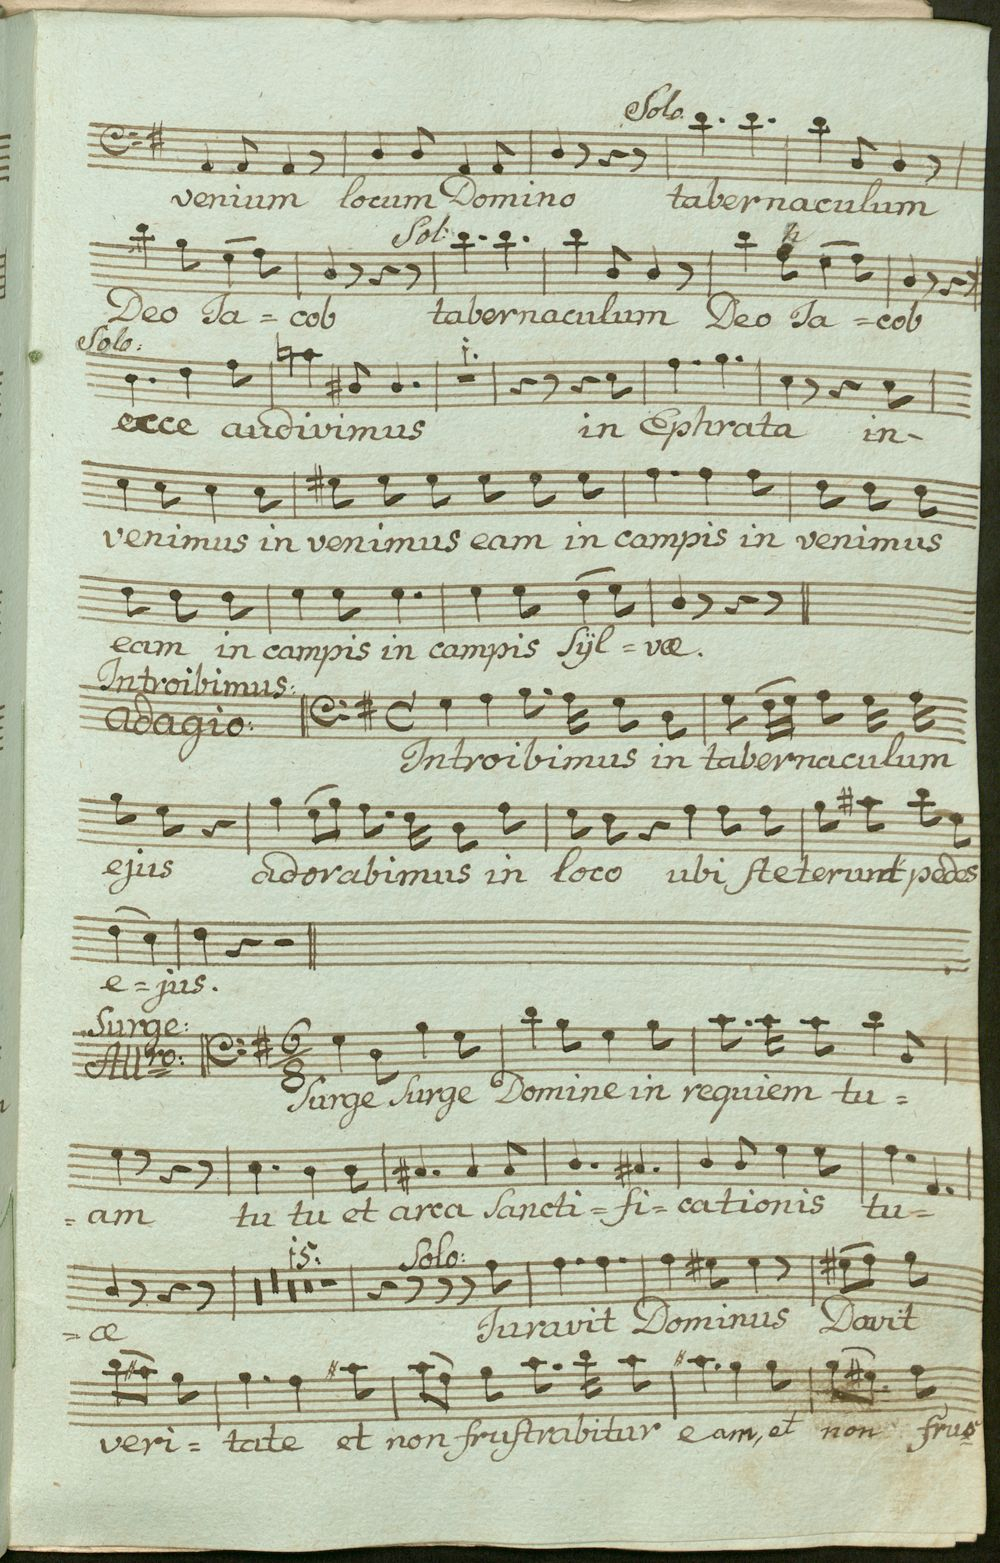 Solo
venium locum Domino tabernaculum
Sol:
Deo Ja = cob tabernaculum Deo Ja = cob
Solo: 1.
ecce audivimus in Ephrata in-
venimus in venimus eam in campis in venimus
eam in campis in campis Sÿl = væ.
Introibimus:
Adagio:
Introibimus in tabernaculum
ejus adorabimus in loco ubi steterunt pedes
e = jus.
Surge:
All:ro: 6/8
Surge Surge Domine in requiem tu =
= am tu tu et arca Sancti = fi = cationis tu =
15: Solo:
= æ Juravit Dominus David
veri = tate et non frustrabitur eam, et non frus=